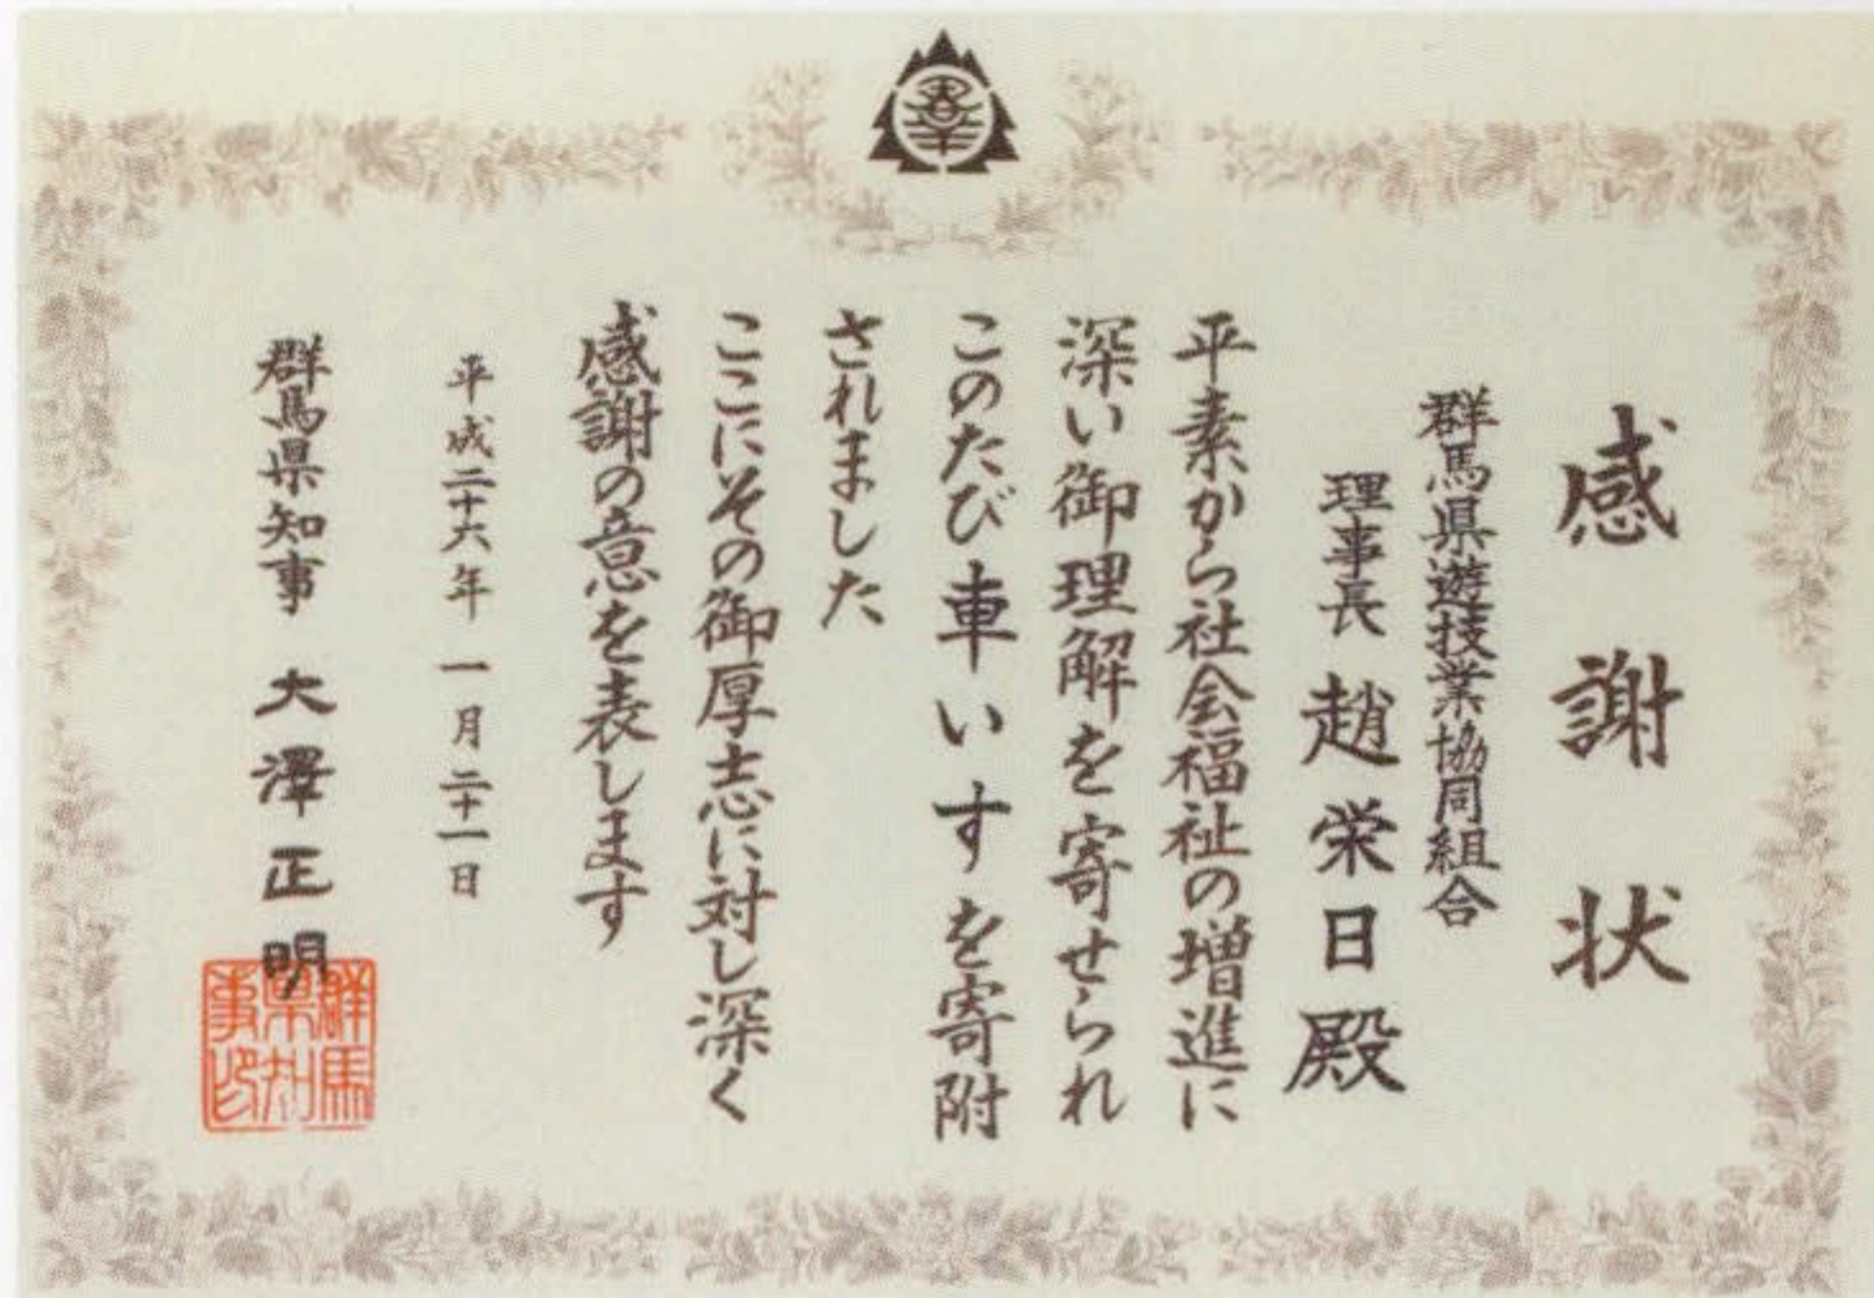 感謝状
群馬県遊技業協同組合
理事長 趙栄日殿
平素から社会福祉の増進に
深い御理解を寄せられ
このたび車いすを寄附
されました
ここにその御厚志に対し深く
感謝の意を表します
平成二十六年一月二十一日
群馬県知事 大澤正明
群馬
県知
事印